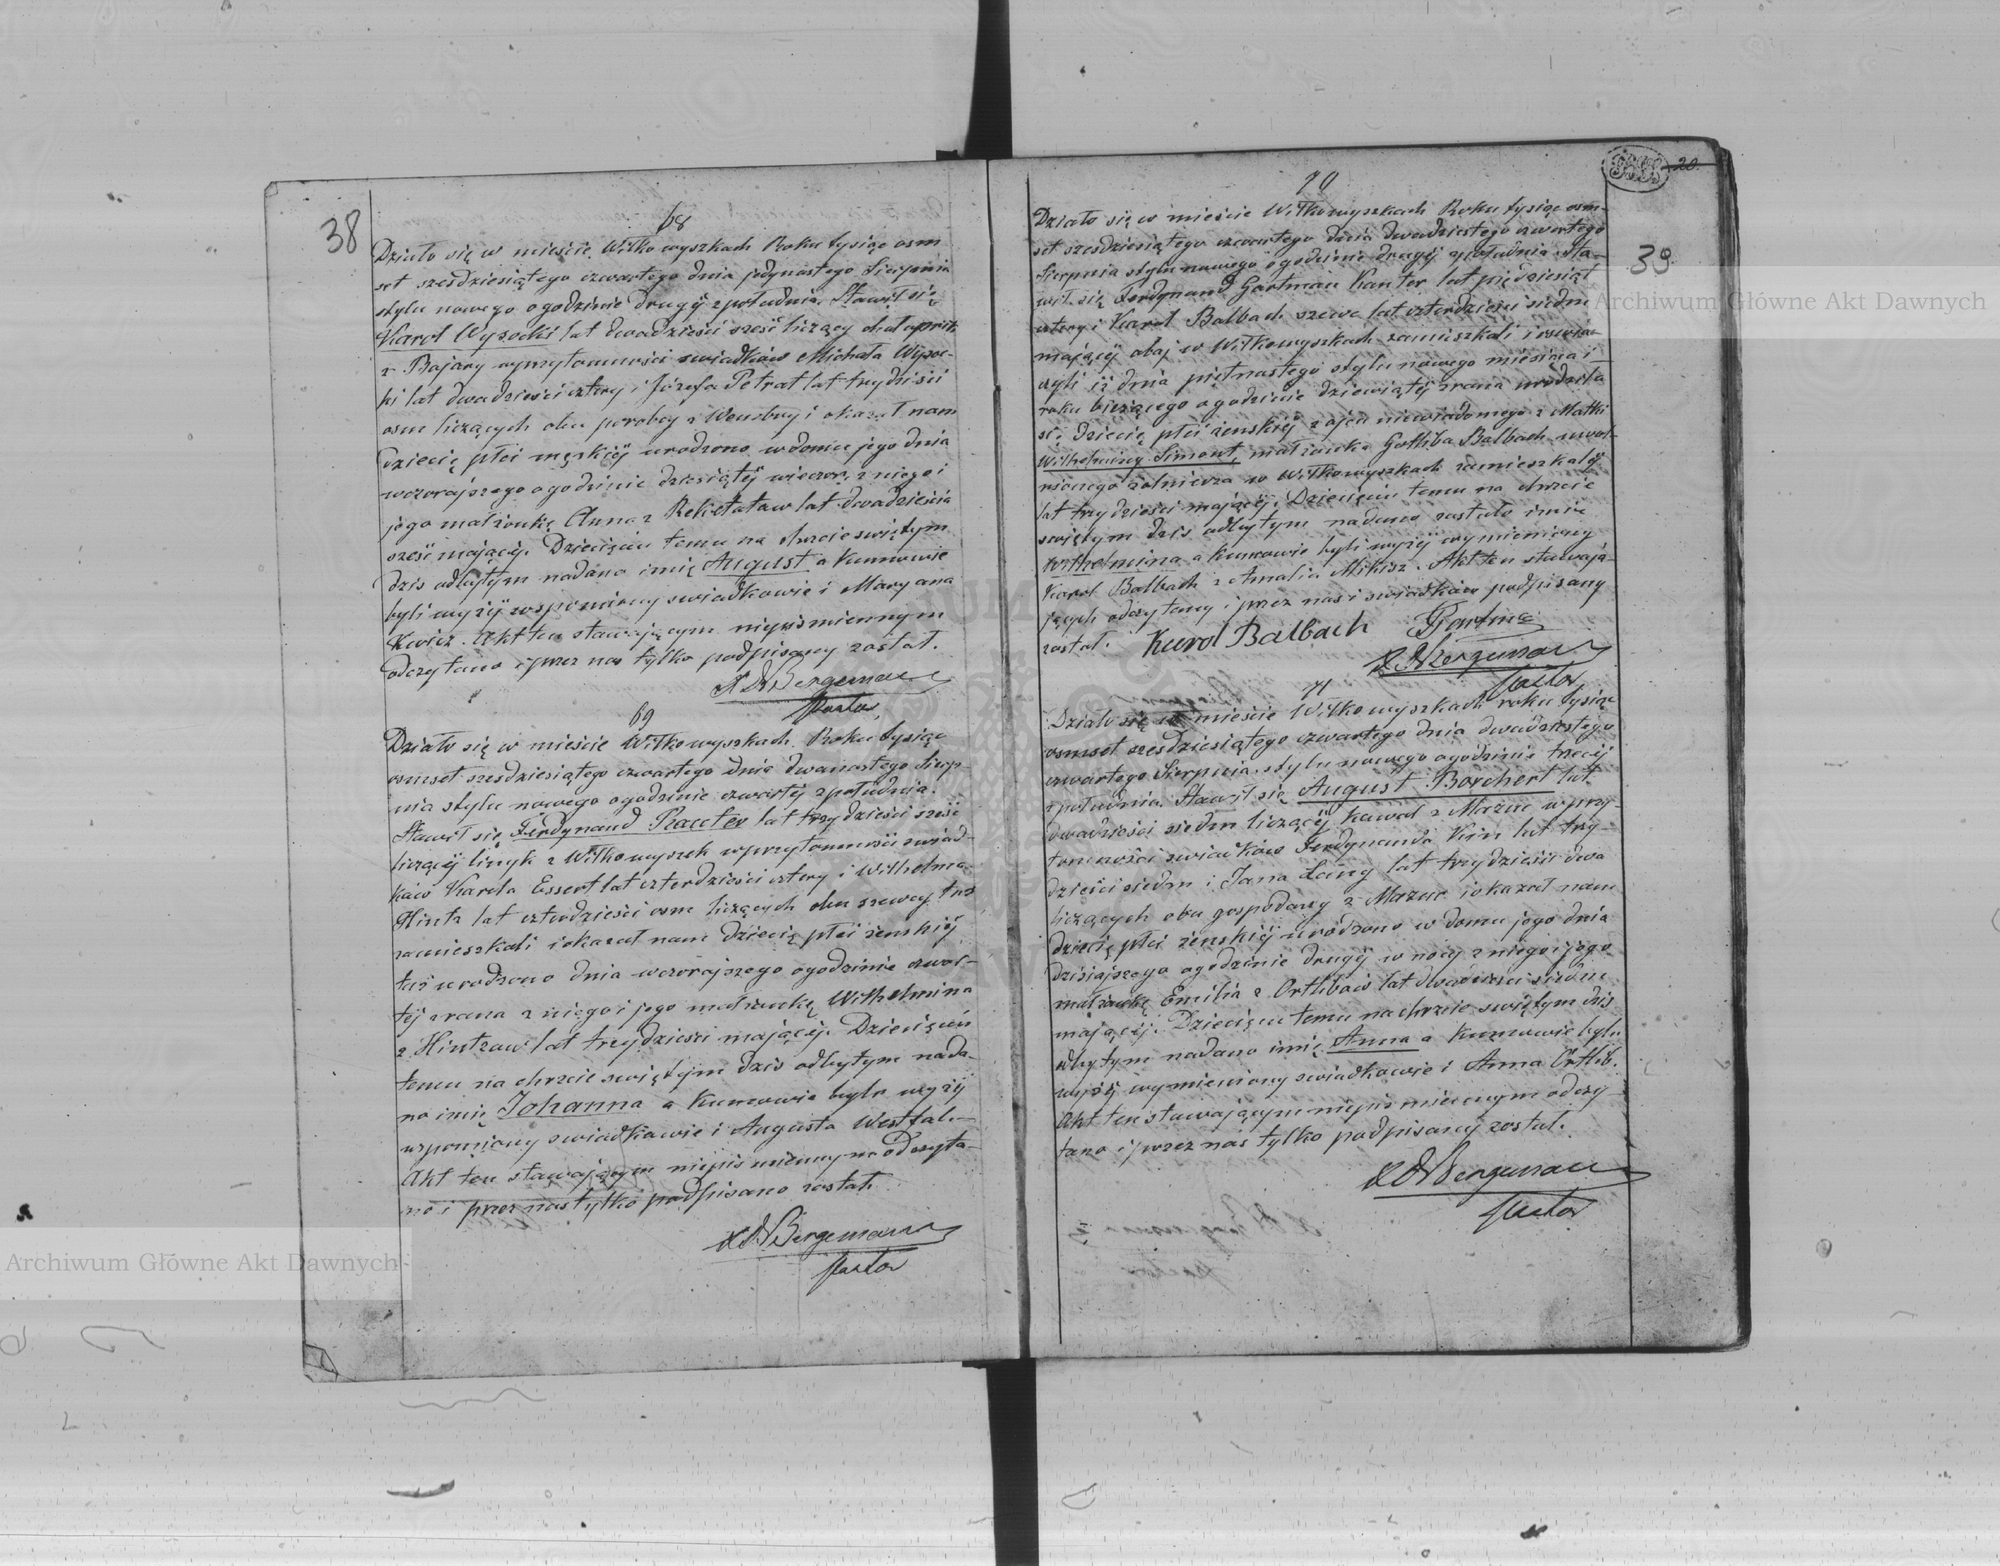 38
68
Działo się w mieście Wiłkowyszkach Roku tysiąc osm
set szesdziesiątego czwartego dnia jedynastego Sierpnia
stylu nowego o godzinie drugiy z południa. Stawił się
Karol Wysocki lat dwadzieści sześć liczący
z Bajary w przytomności swiadków Michała Wysoc-
ki lat dwadzieści cztery i Józefa Petrat lat trzydzieści
osm liczących obu parobcy z i okazał nam
dziecię płci męskiéy urodzone w domu jego dnia
wczorajszego o godzinie dziesiątéy wieczor, z niego i
jego małżonkę Anna z lat dwadzieścia
sześć mającéj. Dziecięciu temu na chrzcie swiętym
dzis odbytym nadano imię August a kumowie
byli wyżéy wspomniony swiadkowie i Maryana
Kwicz. Akt ten stawającym niepismiennym
odczytano i przez nas tylko podpisany został.
Bergemann
Pastor
69
Działo się w mieście Wiłkowyszkach Roku tysiąc
osmset szesdziesiątego czwartego dnia dwanastego Sierp-
nia stylu nowego o godzinie czwartéj z południa.
Stawił się Ferdynand lat trzydzieści sześć
liczącéj z Wiłkowyszek w przytomności swiad-
ków Karola Essert lat czterdzieści cztery i Wilhelma
Hintz lat czterdzieści osm liczących obu szewcy tuż
zamieszkali i okazał nam dziecię płci żenskiéj
tuż urodzono dnia wczorajszego o godzinie czwar-
téj z rana z niego i jego małżonkę Wilhelmina
z Hintzow lat trzydzieści mającéj. Dziecięciu
temu na chrzcie swiętym dzis odbytym nada-
no imię Johanna a kumowie było wyżéj
wspomniony swiadkowie i Augusta Westfal.
Akt ten stawającym niepismiennym odczyta-
no i przez nas tylko podpisano został.
Bergemann
Pastor
20
39
70
Działo się w mieście Wiłkowyszkach Roku tysiąc osm-
set szesdziesiątego czwartego dnia dwudziestego czwartego
Sierpnia stylu nowego o godzinie drugiéj z południa. Sta-
wił się Ferdynand Gartman Kantor lat piędziesiąt
cztery i Karol Balbach szewc lat czterdzieści siedm
mającéj obaj w Wiłkowyszkach zamieszkali i oswiad-
czyli iż dnia piętnastego stylu nowego miesiąca i
roku bieżącego o godzinie dziewiątéj z rana urodziła
się dziecię płci żenskiéj z ojca niewiadomego z Matki
Wilhelminy Simont, małżonka Gotliba Balbach uwol-
nionego żołnierza w Wiłkowyszkach zamieszkałéj
lat trzydzieści mającéj. Dziecięciu temu na chrzcie
swiętym dzis odbytym nadano zostało imie
Wilhelmina a kumowie byli wyżéj wymieniony
Karol Balbach i Amalia Mikisz. Akt ten stawają-
jących odczytany i przez nas i swiadków podpisany
został. Karol Balbach Gartman
Bergemann
Pastor
71
Działo się w mieście Wiłkowyszkach roku tysiąc
osmset szesdziesiątego czwartego dnia dwudziestego
czwartego Sierpnia stylu nowego o godzinie trzeciéj
z południa. Stawił się August Borchert lat
dwadzieści siedm liczącéj z Mazur w przy-
tomności swiadków Ferdynanda Kin lat trzy-
dzieści siedm i Jana Lang lat trzydzieści dwa
liczących obu gospodarzy z Mazur i okazał nam
dziecię płci żenskiéj urodzono w domu jego dnia
dzisiajszego o godzinie drugiéj w nocy z niego i jego
małżonkę Emilia z Ortlibów lat dwadzieści siedm
mającéj. Dziecięciu temu na chrzcie swiętym dzis
odbytym nadano imię Anna a kumowie byli
wyżéj wymieniony swiadkowie i Anna Ortlib.
Akt ten stawającym niepismiennym odczy-
tano i przez nas tylko podpisany został.
Bergemann
Pastor
Archiwum Główne Akt Dawnych
Archiwum Główne Akt Dawnych